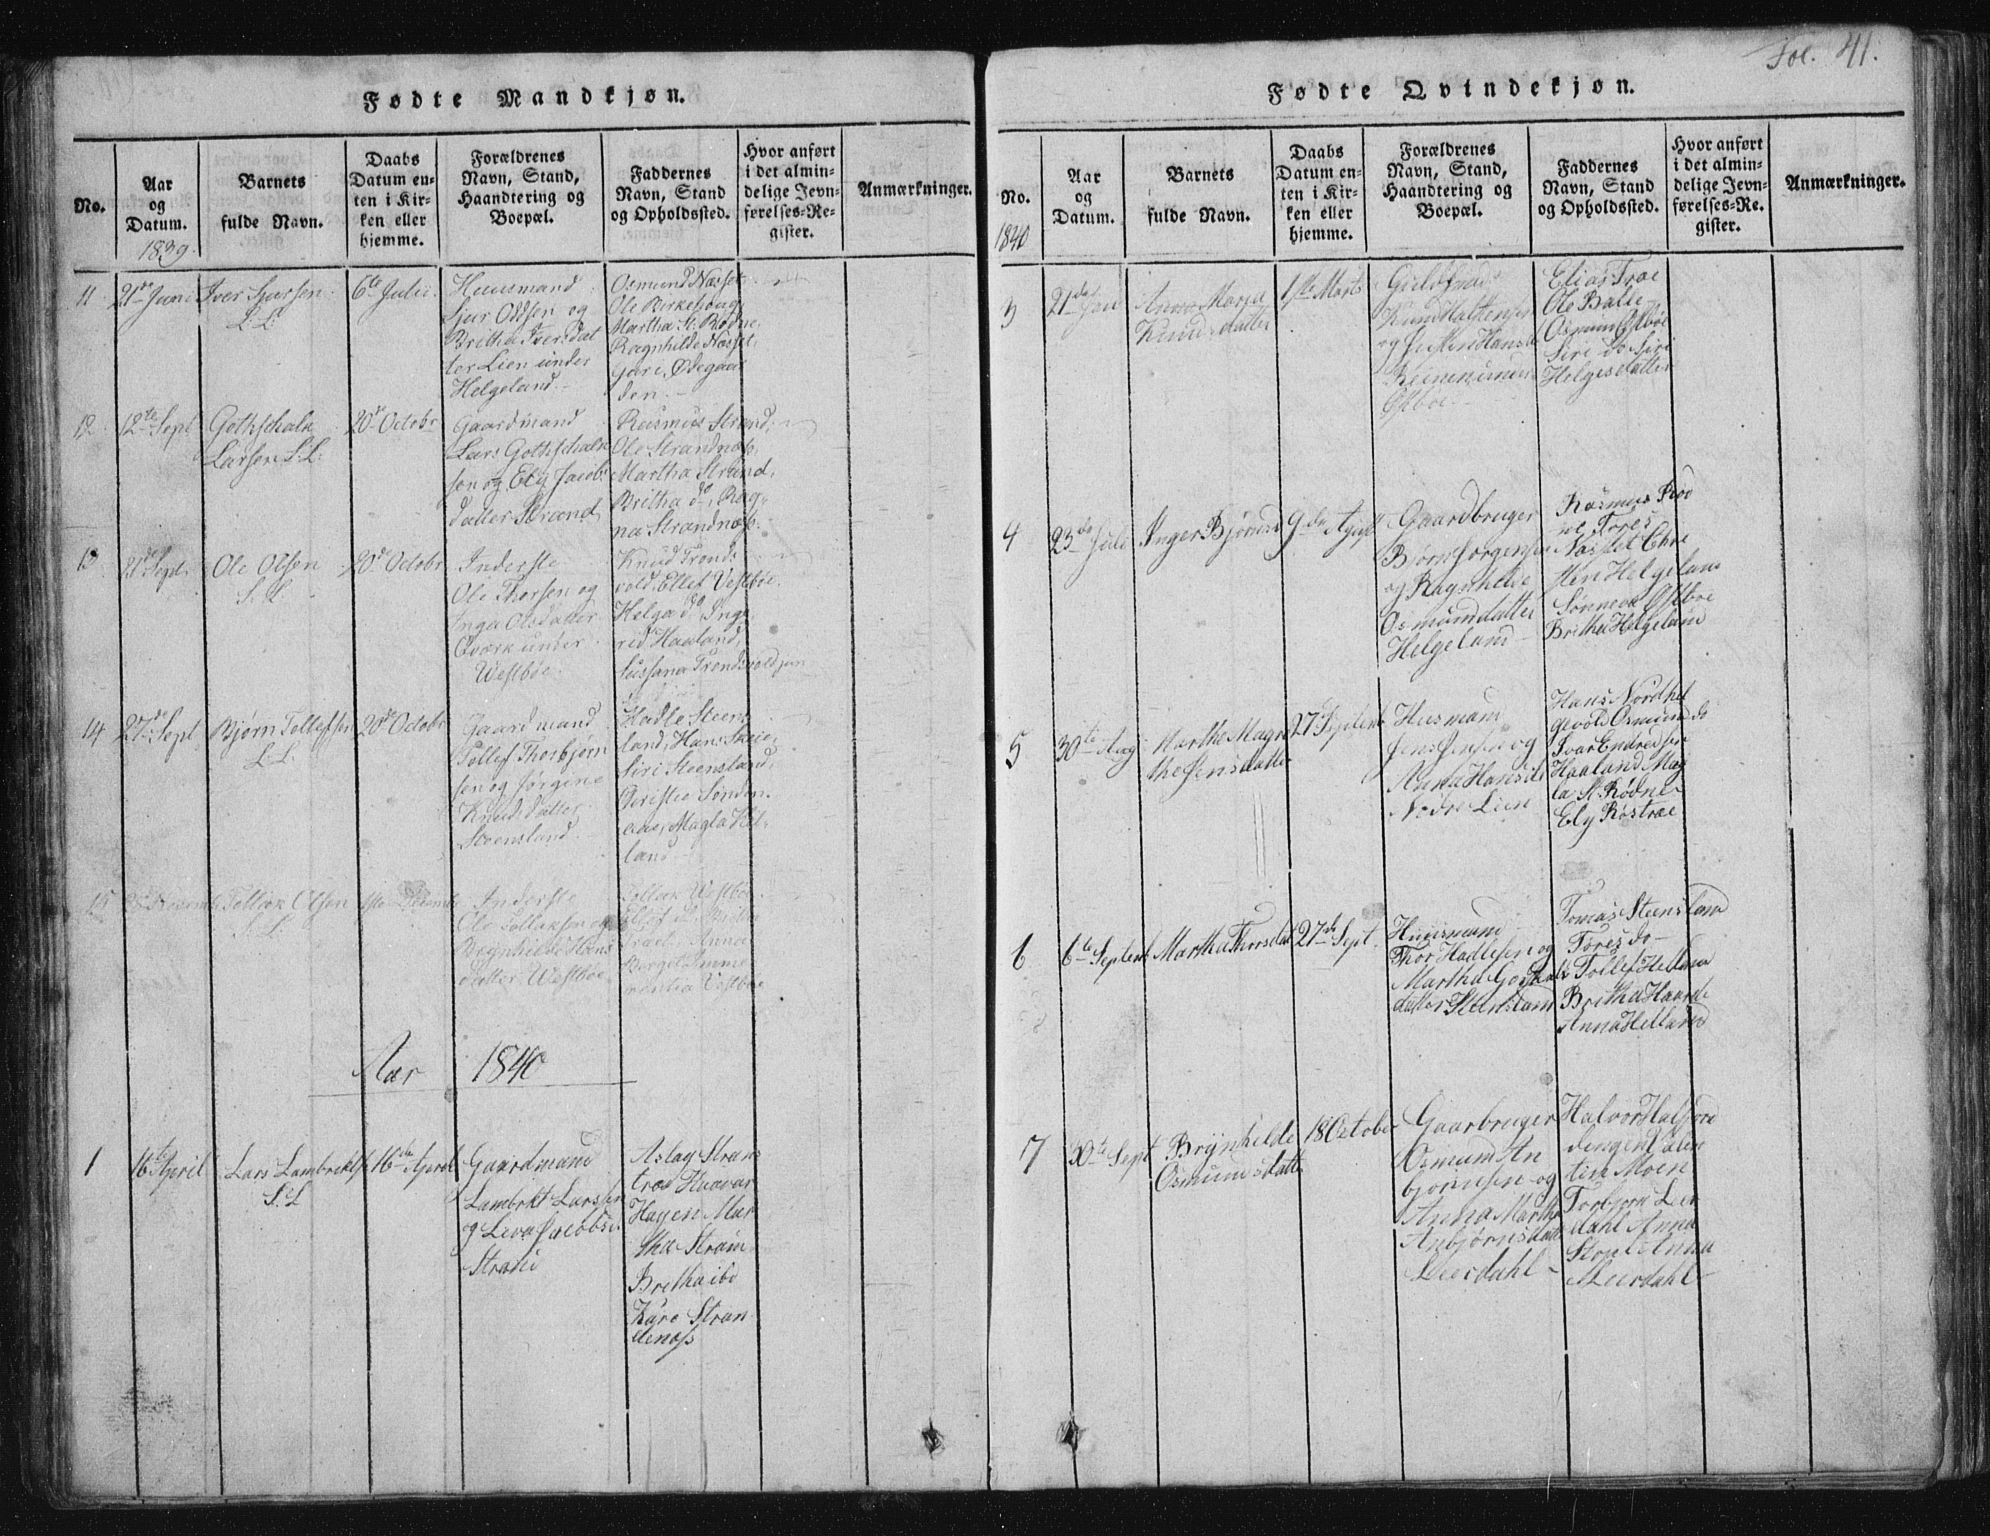 Fol. 41.
Fødte Mandkjøn.
No.
Aar
og
Datum.
1839.
Barnets
fulde Navn.
Daabs
Datum en-
ten i Kir-
ken eller
hjemme.
Forældrenes
Navn, Stand,
Haandtering og
Boepæl.
Faddernes
Navn, Stand
og Opholdssted.
Hvor anført
i det almin-
delige Jevn-
førelses-Re-
gister.
Anmærkninger.
11
21de Juni
Iver Sjursen
L.L.
6te Julii
Huusmand
Sjur Oddsen og
Britha Iversdat
ter Lien under
Helgeland.
Osmund Næsset
Ole Birkehoug
Martha St. Rødne,
Ragnhilde Næsset,
Guri Ødegaar
den.
12
12te Sept
Gothschalk
Larsen L.L.
20de Octobr
Gaardmand
Lars Gothschalk
sen og Ely Jacobs
datter Strand
Rasmus Strand,
Ole Strandnæss,
Martha Strand,
Britha do, Rag
na Strandnæss.
13
21de Sept.
Ole Olsen
L.L.
20de Octobr
Inderste
Ole Thorsen og
Inga Olsdatter
Qværk under
Westbøe.
Knud Tronds
vold, Ellef Vestbøe,
Helga do, Inge
red Haaland,
Sussana Trondsvold jun
14
27de Sept
Bjørn Tollefsen
L.L.
20de Octobr
Gaardmand
Tollef Thorbjørn
sen og Jørgine
Knudsdatter
Steensland.
Hadle Steens
land, Hans Skeie,
Siri Steensland,
Christie Sønden
aae, Magla Hel
land
15
Novemb
Tollak Olsen
L.L.
Decemb
Inderste
Ole Tollaksen og
Brynhilde Hans
datter Westbøe
Tollak Vestbøe
Elef do, Britha
Træe, Anna
Vestbøe
Aar 1840
1
16te April
Lars Lambrektsen
L.L
16de April
Gaardmand
Lambrekt Larssen
og Liva Jacobsd.
Strand
Aslag Strans
træe Haavar
Hagen Mar
tha Strand
Brethe ibd
Kare Stran
denæss
Fødte Qvindekjøn.
No.
1840
Aar
og
Datum.
Barnets
fulde Navn.
Daabs
Datum en-
ten i Kir-
ken eller
hjemme.
Forældrenes
Navn, Stand,
Haandtering og
Boepæl.
Faddernes
Navn, Stand
og Opholdssted.
Hvor anført
i det almin-
delige Jevn-
førelses-Re-
gister.
Anmærkninger.
3
21de Jan
Anna Maria
Knudsdatter
1ste Marts
Knud Halstensen
Østboe
Elias Træe
Ole Balle
Osmun Østbøe
Siri do Siri
Helgesdatter
4
23de Juli
Inger Bjørnsd
9de Agust
Gaardbruger
Bjørn Jorgensen
og Ragnhilde
Osmundatter
Helgeland
Rasmus Rød
ne Tores
Næsset Chri
sten Helgeland
Sønneva Østboe
Britha Helgeland
5
30te Aug
Marthe Magre
the Jensdatter
27 Septemb
Husmand
Jens Jensen og
Anna Hansd
Nedre Lien
Hans Nordhel
gevold Osmund do
Ivar Endresen
Haaland Mag
la St. Rødne
Ely Røstræe
6
6te Septemb
Martha Thorsdat
27de Sept.
Huusmand
Thor Hadlesen og
Martha Goskalks
datter Steensland
Tomas Steensland
Tores do
Tollef Helland
Britha Haarde
Anna Helland
7
30te Sept
Brynhelde
Osmundsdatter
18 October
Gaarbruger
Osmund An
bjørnsen og
Anna Martha
Anbjørnsdatt
Leerdahl
Halvor Halfore
dengen Salen
ten Moen
Torbjørn Leer
dahl Anna
Stople Anna
Leerdahl